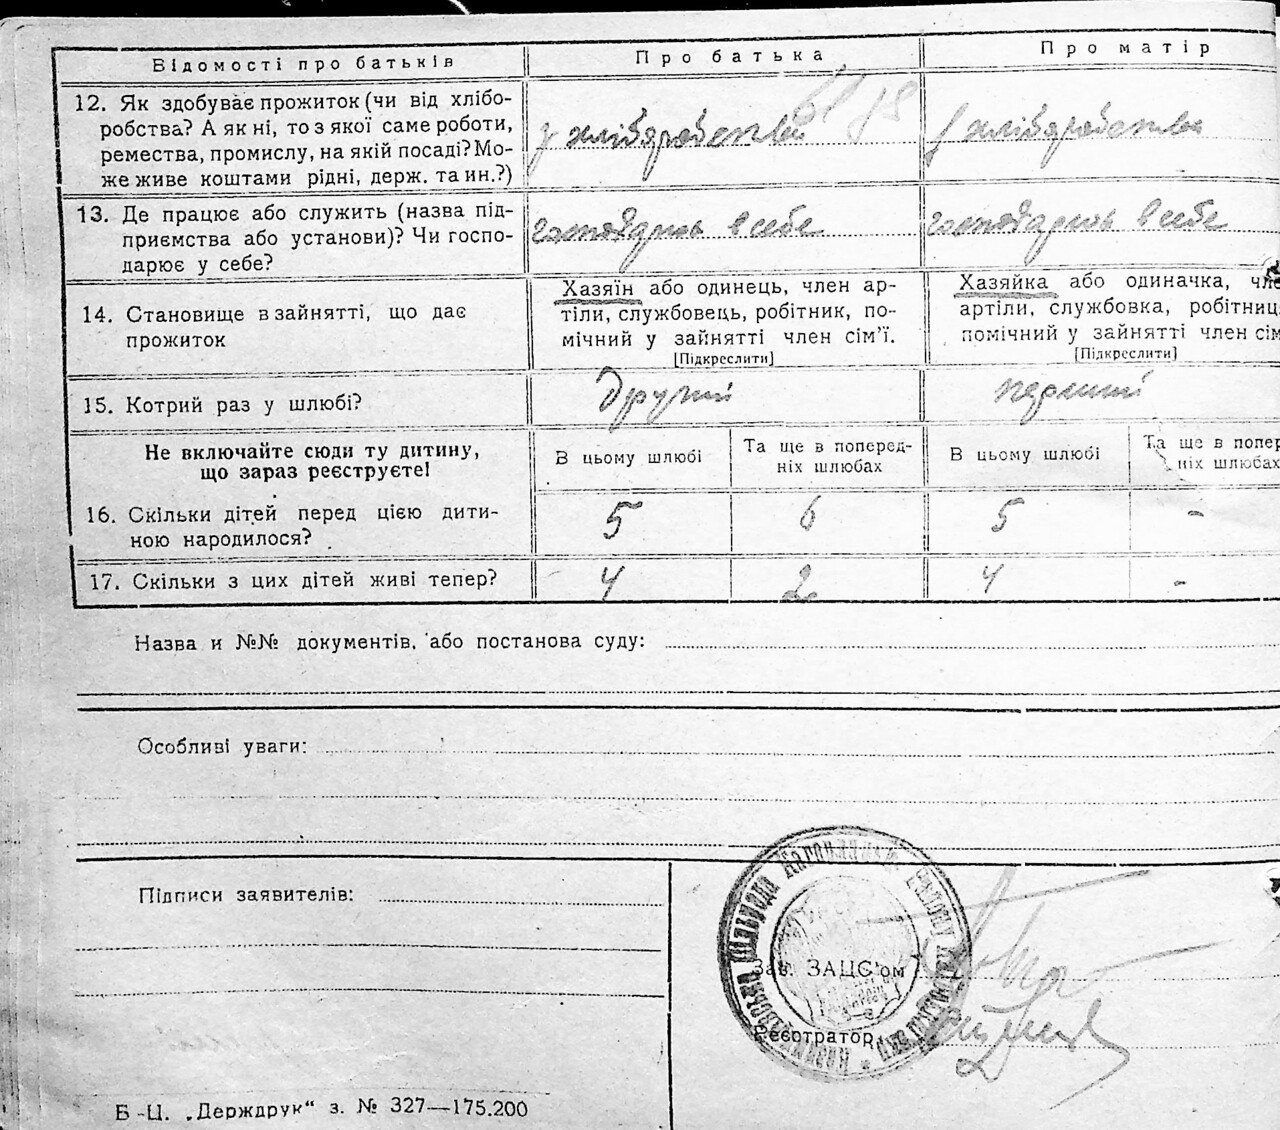 Відомості про батьків
Про батька
Про матір
12. Як здобуває прожиток (чи від хлібо-
робства? А як ні, то з якої саме роботи,
ремества, промислу, на якій посаді? Мо-
же живе коштами рідні, держ. та ин.?)
у хліборобстві
у хліборобстві
13. Де працює або служить (назва під-
приємства або установи)? Чи госпо-
дарює у себе?
в себе
в себе
14. Становище в зайнятті, що дає
прожиток
Хазяїн або одинець, член ар-
тіли, службовець, робітник, по-
мічний у зайнятті член сім'ї.
[Підкреслити]
Хазяйка або одиначка, чле
артіли, службовка, робітниц
помічний у зайнятті член сім
[Підкреслити]
15. Котрий раз у шлюбі?
другий
перший
Не включайте сюди ту дитину,
що зараз реєструєте!
В цьому шлюбі
Та ще в поперед-
ніх шлюбах
В цьому шлюбі
Та ще в попер
ніх шлюбах
16. Скільки дітей перед цією дити-
ною народилося?
5
6
5
-
17. Скільки з цих дітей живі тепер?
4
2
4
-
Назва и №№ документів, або постанова суду:
Особливі уваги:
Підписи заявителів:
Зав. ЗАЦС'ом
Реєстратор
Б-Ц. „Держдрук“ з. № 327—175.200